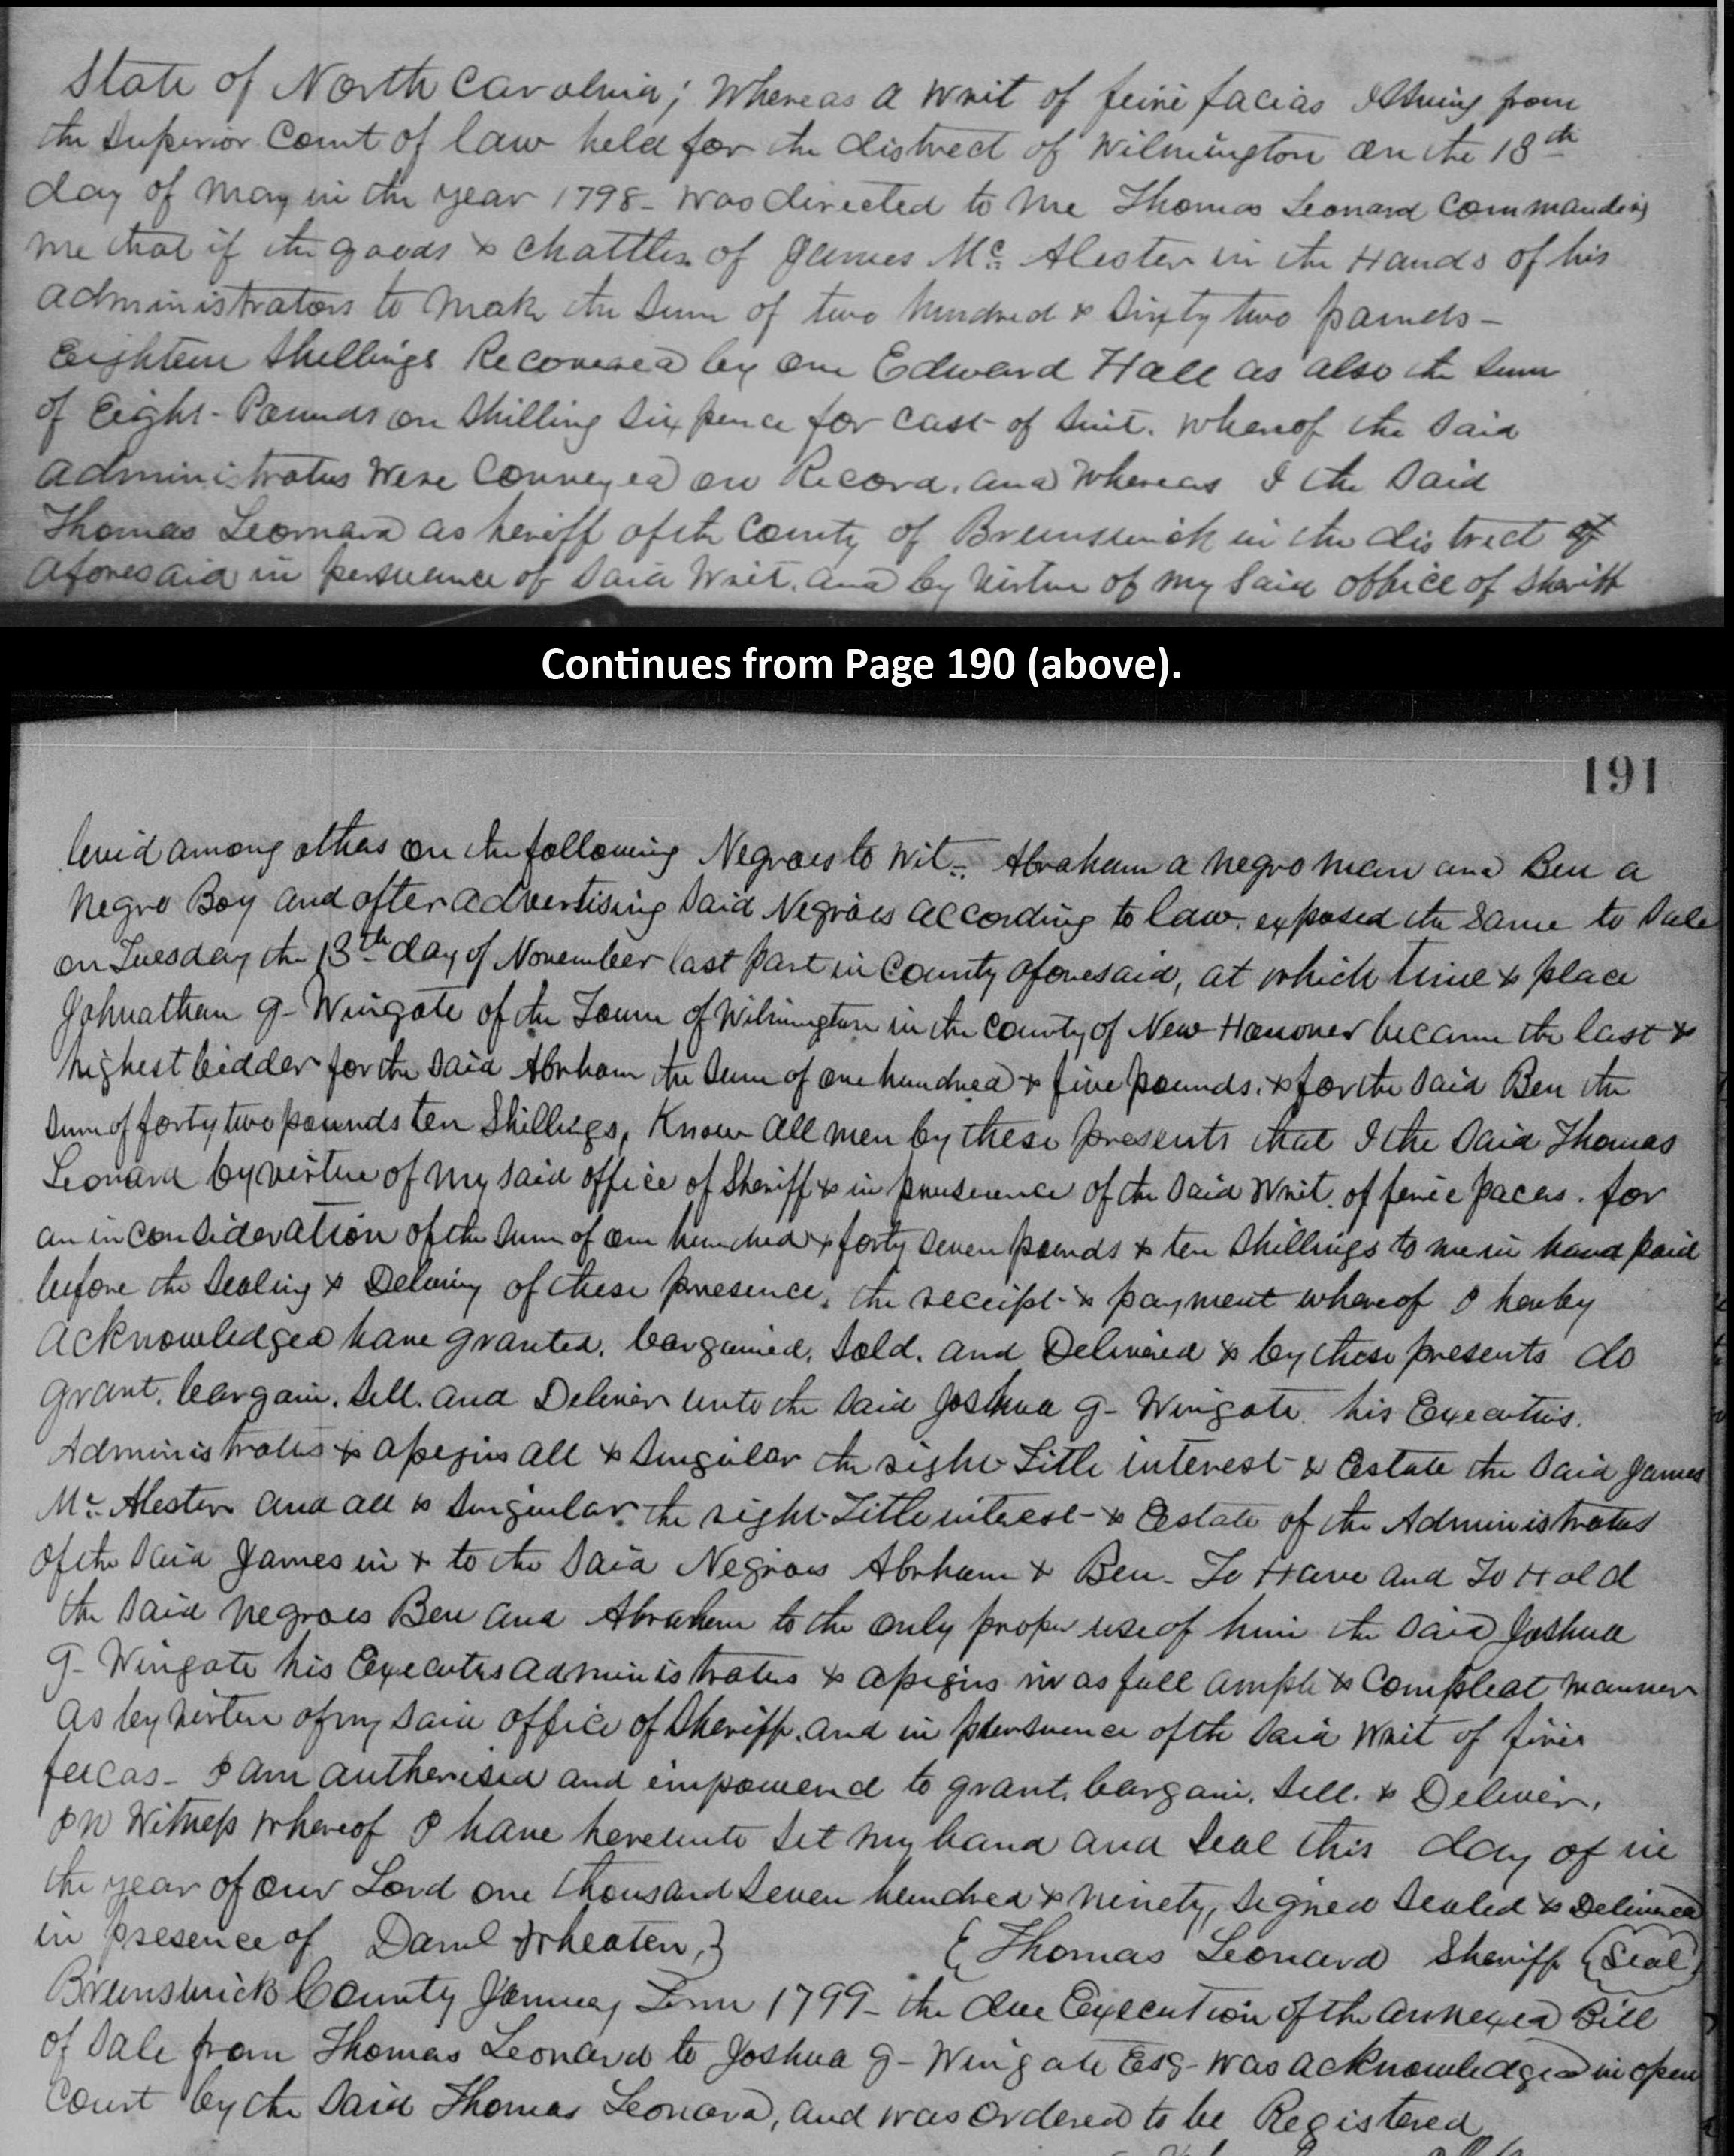 State of North Carolina; Whereas a Writ of feiri facias Issuing from
the Superior Court of law held for the district of Wilmington on the 18th
day of May in the year 1798- was directed to me Thomas Leonard Commanding
me that if the goods & Chattles of James Mc. Alester in the Hands of his
Administrators to Make the Sum of two hundred & Sixty two pounds-
Eighteen Shellings Recovered by one Edward Hall as also the Sum
of Eight- Pounds on Shilling Six pence for Cast- of Suit. whereof the Said
Administrators Were Conveyed on Record, and Whereas I the Said
Thomas Leonard as heriff of th County of Brunswick in the district of
aforesaid in persuance of Said Writ. and by Virtue of my Said office of Sheriff
Continues from Page 190 (above).
191
levid among others on the following Negroes to wit-. Abraham a negro man and Ben a
Negro Boy and after advertising Said Negroes according to law. exposed the Same to Sale
on Tuesday the 13th day of November last past in County aforesaid, at which time & place
Johnathan G- Wingate of the Town of Wilmington in the County of New Hanover became the last &
highest bidder for the Said Abrham the Sum of one hundred & five pounds. & for the Said Ben the
Sum of forty two pounds ten Shillings, Know all men by these presents that I the Said Thomas
Leonard by virtue of my said office of Sheriff & in of the Said Writ. of ferie facas. for
an in Consideration of the Sum of one hundred & forty Seven pounds & ten Shillings to me in hand paid
before the Sealing & Delivery of these presence, the receipt- & payment whereof I hereby
acknowledged have granted, bargained, Sold, and Delivered & by these presents do
grant, bargain, Sell, and Deliver unto the Said Joshua G- Wingate his Executris,
Administrators & assigns all & Singular the right Title interest- & Estate the Said James
Mc. Alester and all & Singular the right Title interest- & Estate of the Administrators
of the Said James in & to the Said Negroes Abrham & Ben- To Have and To Hold
the Said negroes Ben and Abraham to the only proper use of him the Said Joshua
G- Wingate his Executors administrators & assigns in as full ample & Compleat manner
as by virtue of my Said office of Sheriff, and in persuence of th Said Writ of firie
feicas- I am autherised and impowered to grant, bargain, Sell, & Deliver,
In Witness whereof I have hereunto Set my hand and Seal this day of in
the year of our Lord one thousand Seven hundred & ninety, Signed Sealed & Delivered
in presence of Danl Wheaten,} { Thomas Leonard Sheriff {Seal}
Brunswick County January Term 1799- the due Execution of the annexed Bill
of Sale from Thomas Leonard to Joshua G- Wingate Esq- was acknowledged in open
Court by the Said Thomas Leonard, and was Ordered to be Registered